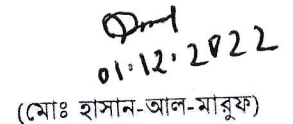 01.12.2022
(মোঃ হাসান-আল-মারুফ)